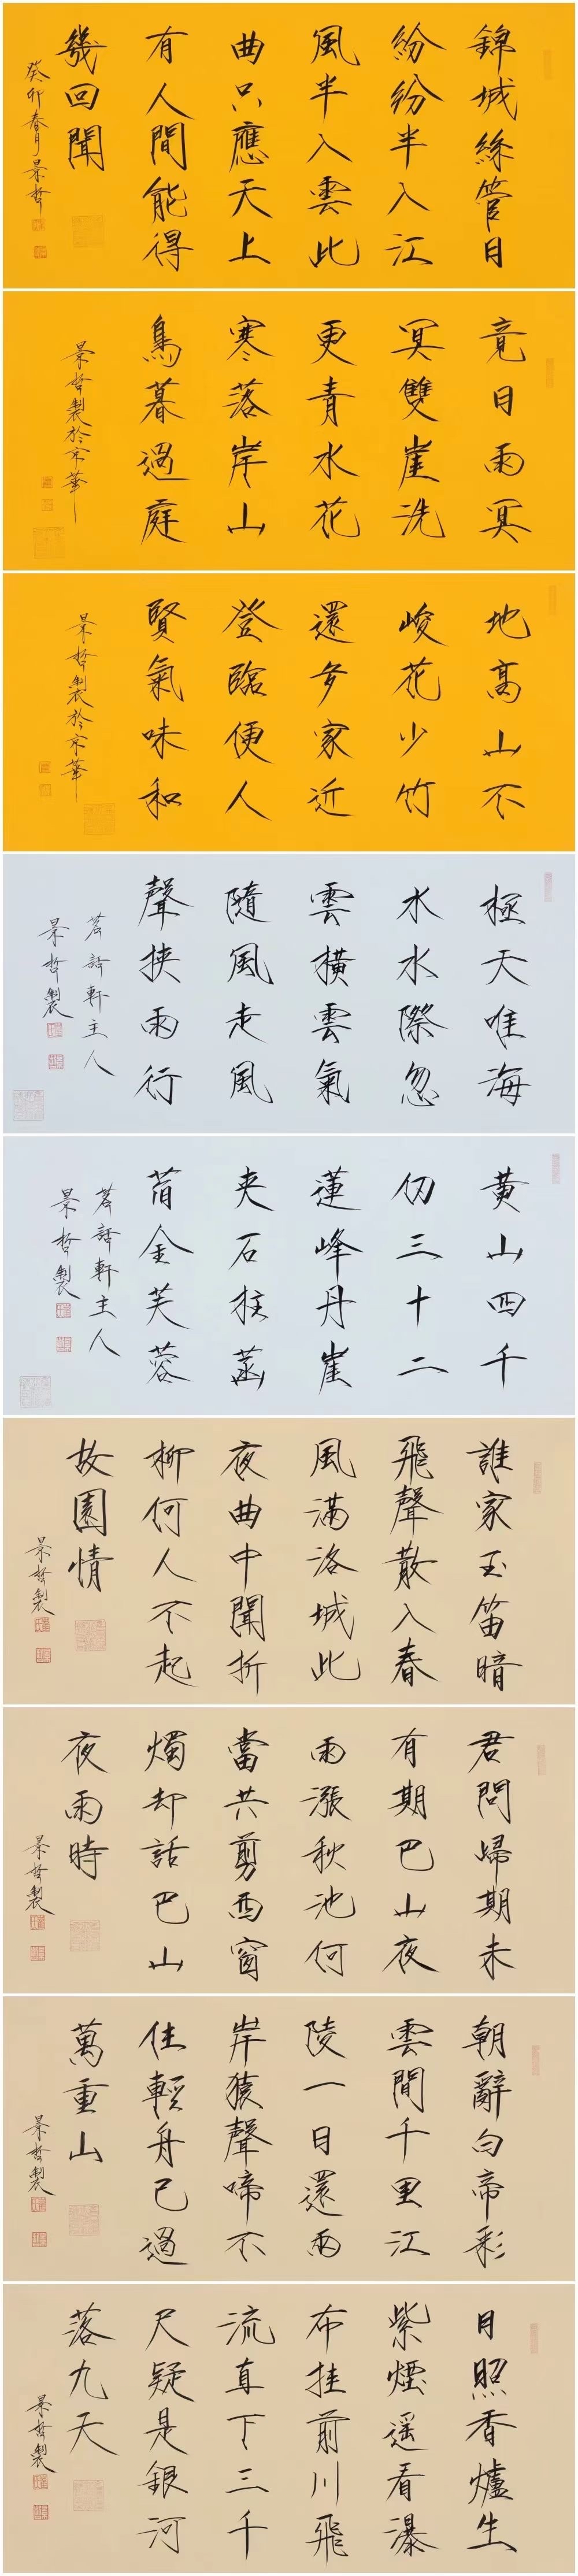 錦城絲管日
紛紛半入江
風半入雲此
曲只應天上
有人間能得
幾回聞
癸卯春月景哲
竟日雨冥
冥雙崖洗
更青水花
寒落岸山
鳥暮過庭
景哲製於京華
地高山不
峻花少竹
還多家近
登臨便人
賢氣味和
景哲製於京華
極天唯海
水水際忽
雲橫雲氣
隨風走風
聲挾雨行
茗話軒主人
景哲製
黃山四千
仞三十二
蓮峰丹崖
夾石柱菡
萏金芙蓉
茗話軒主人
景哲製
誰家玉笛暗
飛聲散入春
風滿洛城此
夜曲中聞折
柳何人不起
故園情
景哲製
君問歸期未
有期巴山夜
雨漲秋池何
當共剪西窗
燭却話巴山
夜雨時
景哲製
朝辭白帝彩
雲間千里江
陵一日還兩
岸猿聲啼不
住輕舟已過
萬重山
景哲製
日照香爐生
紫煙遙看瀑
布挂前川飛
流直下三千
尺疑是銀河
落九天
景哲製